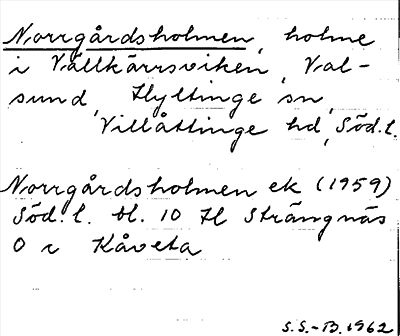 Norrgårdsholmen, holme
i Vällkärrsviken, Val-
sund, Hyltinge sn,
Villåttinge hd, Söd.l.
Norrgårdsholmen ek (1959)
Söd. l. bl. 10 H Strängnäs
O i Kåveta
S.S.-B. 1962